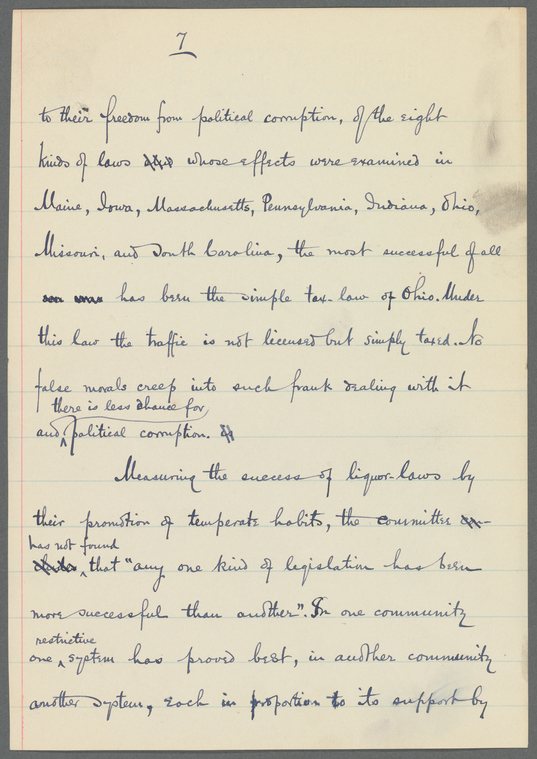 7
to their freedom from political corruption, of the eight
kinds of laws whose effects were examined in
Maine, Iowa, Massachusetts, Pennsylvania, Indiana, Ohio,
Missouri, and South Carolina, the most successful of all
has been the simple tax-law of Ohio. Under
this law the traffic is not licensed but simply taxed. No
false morals creep into such frank dealing with it
there is less chance for
and political corruption.
Measuring the success of liquor-laws by
their promotion of temperate habits, the committee
has not found
that "any one kind of legislation has been
more successful than another". In one community
restrictive
one system has proved best, in another community
another system, each in proportion to its support by